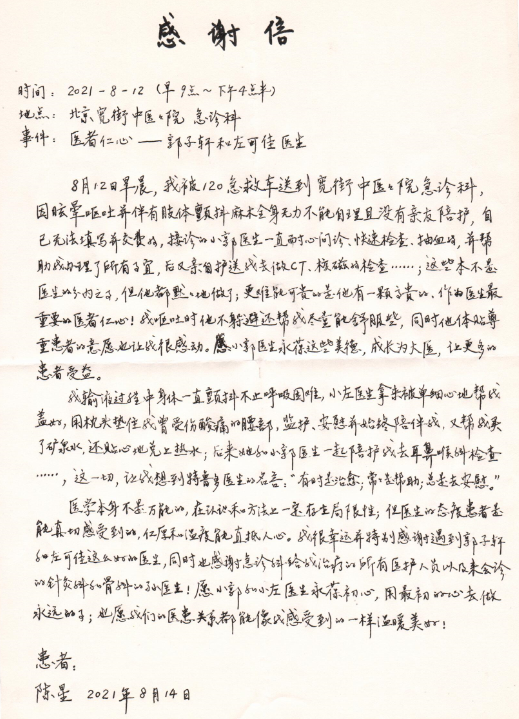 感谢信
时间：2021-8-12（早9点~下午4点半）
地点：北京宽街中医医院 急诊科
事件：医者仁心——郭子轩和左可佳医生
8月12日早晨，我被120急救车送到宽街中医医院急诊科，
因眩晕呕吐并伴有肢体颤抖麻木全身无力不能自理且没有亲友陪护，自
己无法填写并交费的，接诊的小郭医生一直耐心问诊、快速检查、抽血的，并帮
助我办理了所有手宜，后又亲自护送我去做CT、核磁的检查……；这些本不是
医生的分内之事，但他都默默地做了；更难能可贵的是他有一颗高贵的、作为医生最
重要的医者仁心！我呕吐时他不躲避还帮我尽量能舒服些，同时他体贴尊
重患者的意愿也让我很感动。愿小郭医生永葆这些美德，成长为大医，让更多的
患者受益。
我输液过程中身体一直颤抖不止呼吸困难，小左医生拿来被单细心地帮我
盖好，用枕头垫住我曾受伤酸痛的腰部，监护、安慰并始终陪伴我，又帮我买
了矿泉水，还贴心地兑上热水；后来她和小郭医生一起陪护我去耳鼻喉科检查
……，这一切，让我想到特鲁多医生的名言：“有时是治愈；常常是帮助；总是去安慰。”
医学本身不是万能的，在认识和方法上一定存在局限性；但医生的态度患者是
能真切感受到的，仁厚和温度能直抵人心。我很幸运并特别感谢遇到郭子轩
和左可佳这么好的医生，同时也感谢急诊科给我治疗的所有医护人员以及来会诊
的针灸科和骨科的孙医生！愿小郭和小左医生永葆初心，用最初的心去做
永远的事；也愿我们的医患关系都能像我感受到的一样温暖美好！
患者：
陈星 2021年8月14日